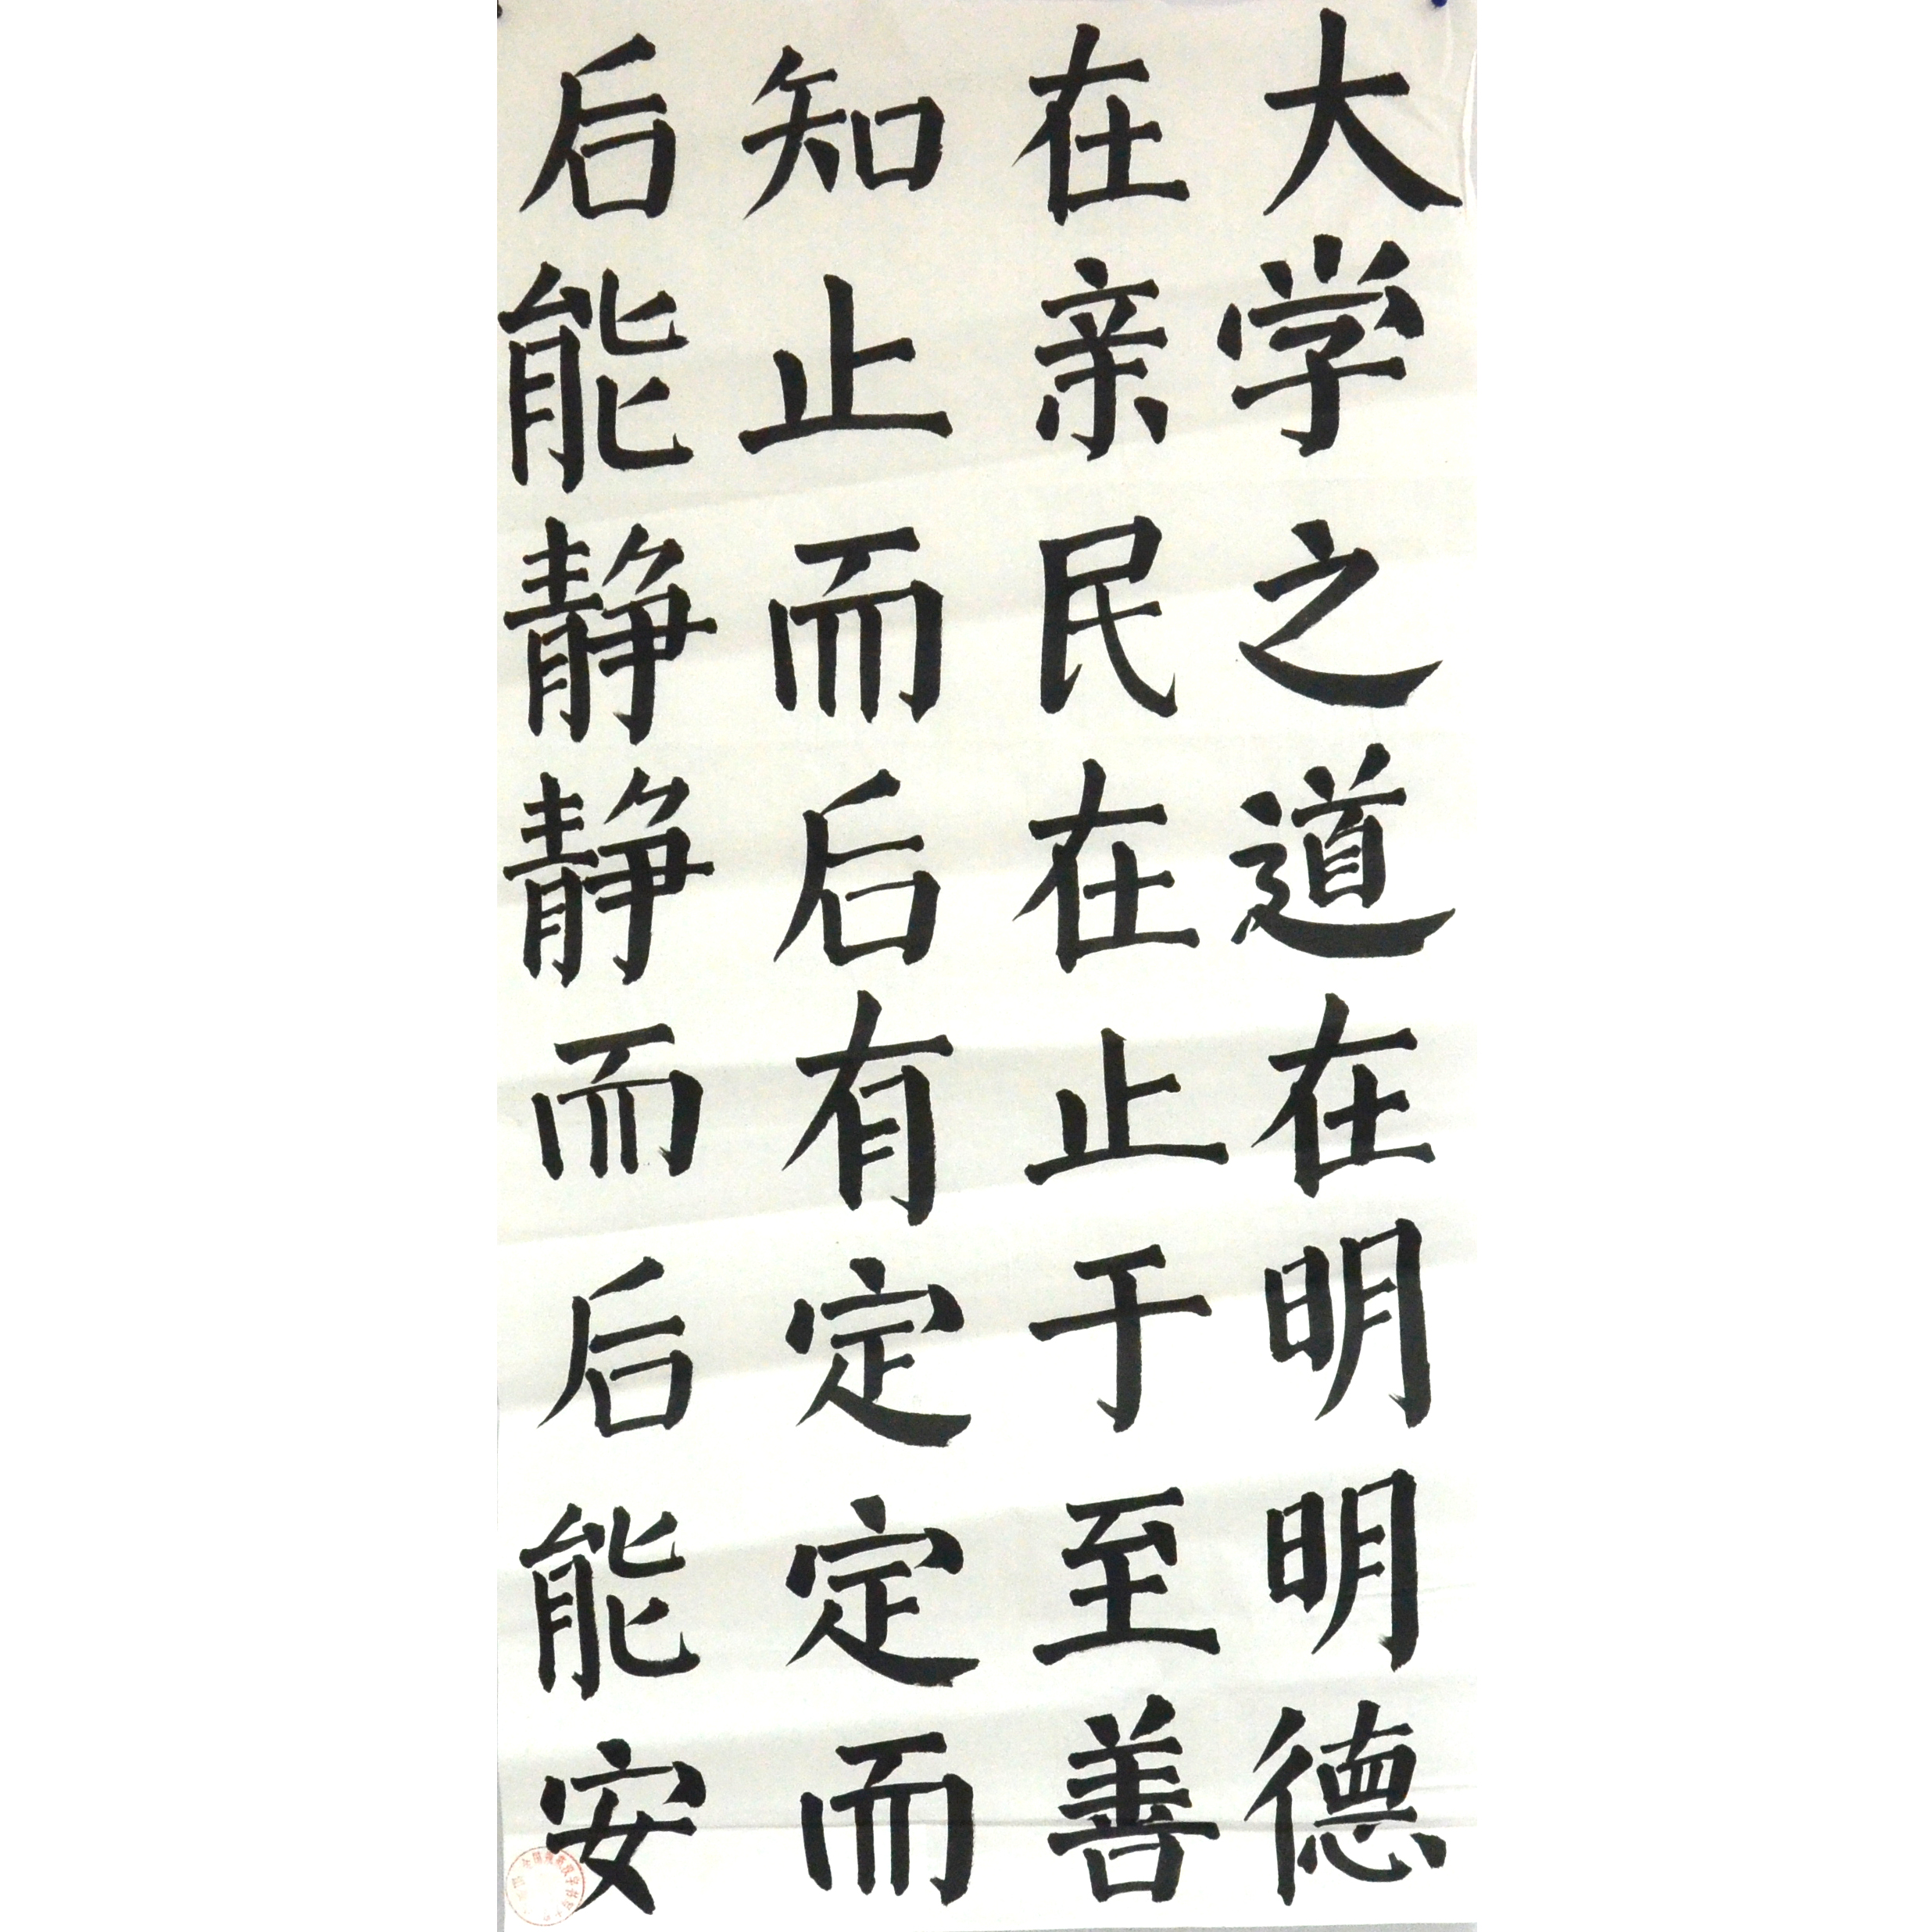 大学之道在明明德
在亲民在止于至善
知止而后有定定而
后能静静而后能安